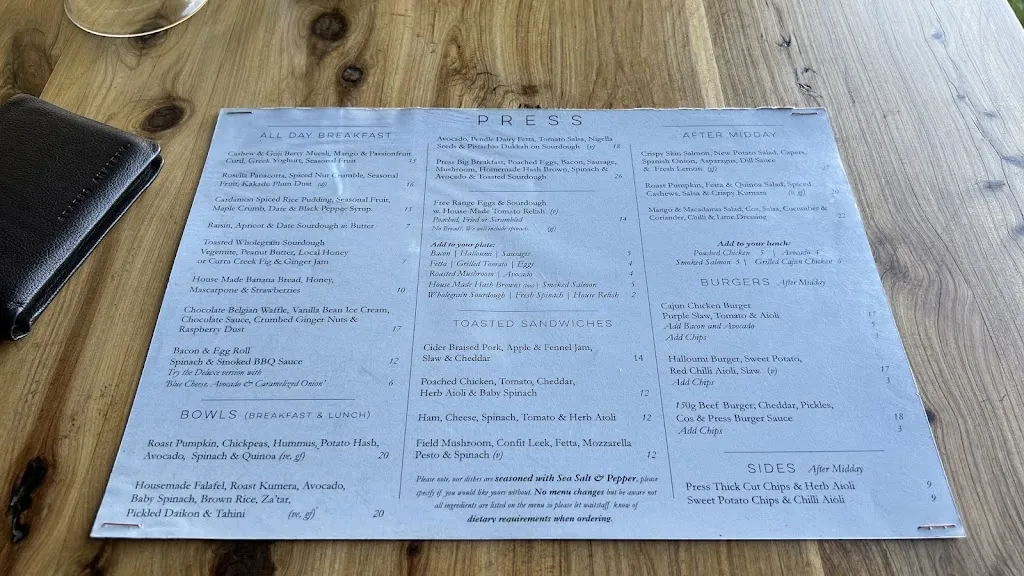 PRESS
ALL DAY BREAKFAST
Cashew & Goji Berry Muesli, Mango & Passionfruit
Curd, Greek Yoghurt, Seasonal Fruit 15
Rosella Panacotta, Spiced Nut Crumble, Seasonal
Fruit, Kakadu Plum Dust (gf) 16
Cardamon Spiced Rice Pudding, Seasonal Fruit,
Maple Crumb, Date & Black Pepper Syrup 15
Raisin, Apricot & Date Sourdough w Butter 7
Toasted Wholegrain Sourdough
Vegemite, Peanut Butter, Local Honey
or Curra Creek Fig & Ginger Jam 7
House Made Banana Bread, Honey,
Mascarpone & Strawberries 10
Chocolate Belgian Waffle, Vanilla Bean Ice Cream,
Chocolate Sauce, Crumbed Ginger Nuts &
Raspberry Dust 17
Bacon & Egg Roll
Spinach & Smoked BBQ Sauce 12
Try the Deluxe version with
'Blue Cheese, Avocado & Caramelized Onion' 6
BOWLS (BREAKFAST & LUNCH)
Roast Pumpkin, Chickpeas, Hummus, Potato Hash,
Avocado, Spinach & Quinoa (ve, gf) 20
Housemade Falafel, Roast Kumera, Avocado,
Baby Spinach, Brown Rice, Za'tar,
Pickled Daikon & Tahini (ve, gf) 20
Avocado, Pendle Dairy Fetta, Tomato Salsa, Nigella
Seeds & Pistachio Dukkah on Sourdough (v) 18
Press Big Breakfast, Poached Eggs, Bacon, Sausage,
Mushroom, Homemade Hash Brown, Spinach &
Avocado & Toasted Sourdough 26
Free Range Eggs & Sourdough
w. House Made Tomato Relish (v)
Poached, Fried or Scrambled 14
No Bread? We will include spinach. (gf)
Add to your plate:
Bacon | Halloumi | Sausages 5
Fetta | Grilled Tomato | Eggs 4
Roasted Mushroom | Avocado 4
House Made Hash Browns | Smoked Salmon 5
Wholegrain Sourdough | Fresh Spinach | House Relish 2
TOASTED SANDWICHES
Cider Braised Pork, Apple & Fennel Jam,
Slaw & Cheddar 14
Poached Chicken, Tomato, Cheddar,
Herb Aioli & Baby Spinach 12
Ham, Cheese, Spinach, Tomato & Herb Aioli 12
Field Mushroom, Confit Leek, Fetta, Mozzarella
Pesto & Spinach (v) 12
Please note, our dishes are seasoned with Sea Salt & Pepper, please
specify if you would like yours without. No menu changes but be aware not
all ingredients are listed on the menu so please let waitstaff know of
dietary requirements when ordering.
AFTER MIDDAY
Crispy Skin Salmon, New Potato Salad, Capers,
Spanish Onion, Asparagus, Dill Sauce
& Fresh Lemon (gf)
Roast Pumpkin, Fetta & Quinoa Salad, Spiced
Cashews, Salsa & Crispy Kumara (v, gf) 20
Mango & Macadamia Salad, Cos, Salsa, Cucumber &
Coriander, Chilli & Lime Dressing 22
Add to your lunch:
Poached Chicken 5 | Avocado 4
Smoked Salmon 5 | Grilled Cajun Chicken 6
BURGERS After Midday
Cajun Chicken Burger
Purple Slaw, Tomato & Aioli 17
Add Bacon and Avocado 5
Add Chips 3
Halloumi Burger, Sweet Potato,
Red Chilli Aioli, Slaw (v) 17
Add Chips 3
150g Beef Burger; Cheddar, Pickles,
Cos & Press Burger Sauce 18
Add Chips 3
SIDES After Midday
Press Thick Cut Chips & Herb Aioli 9
Sweet Potato Chips & Chilli Aioli 9